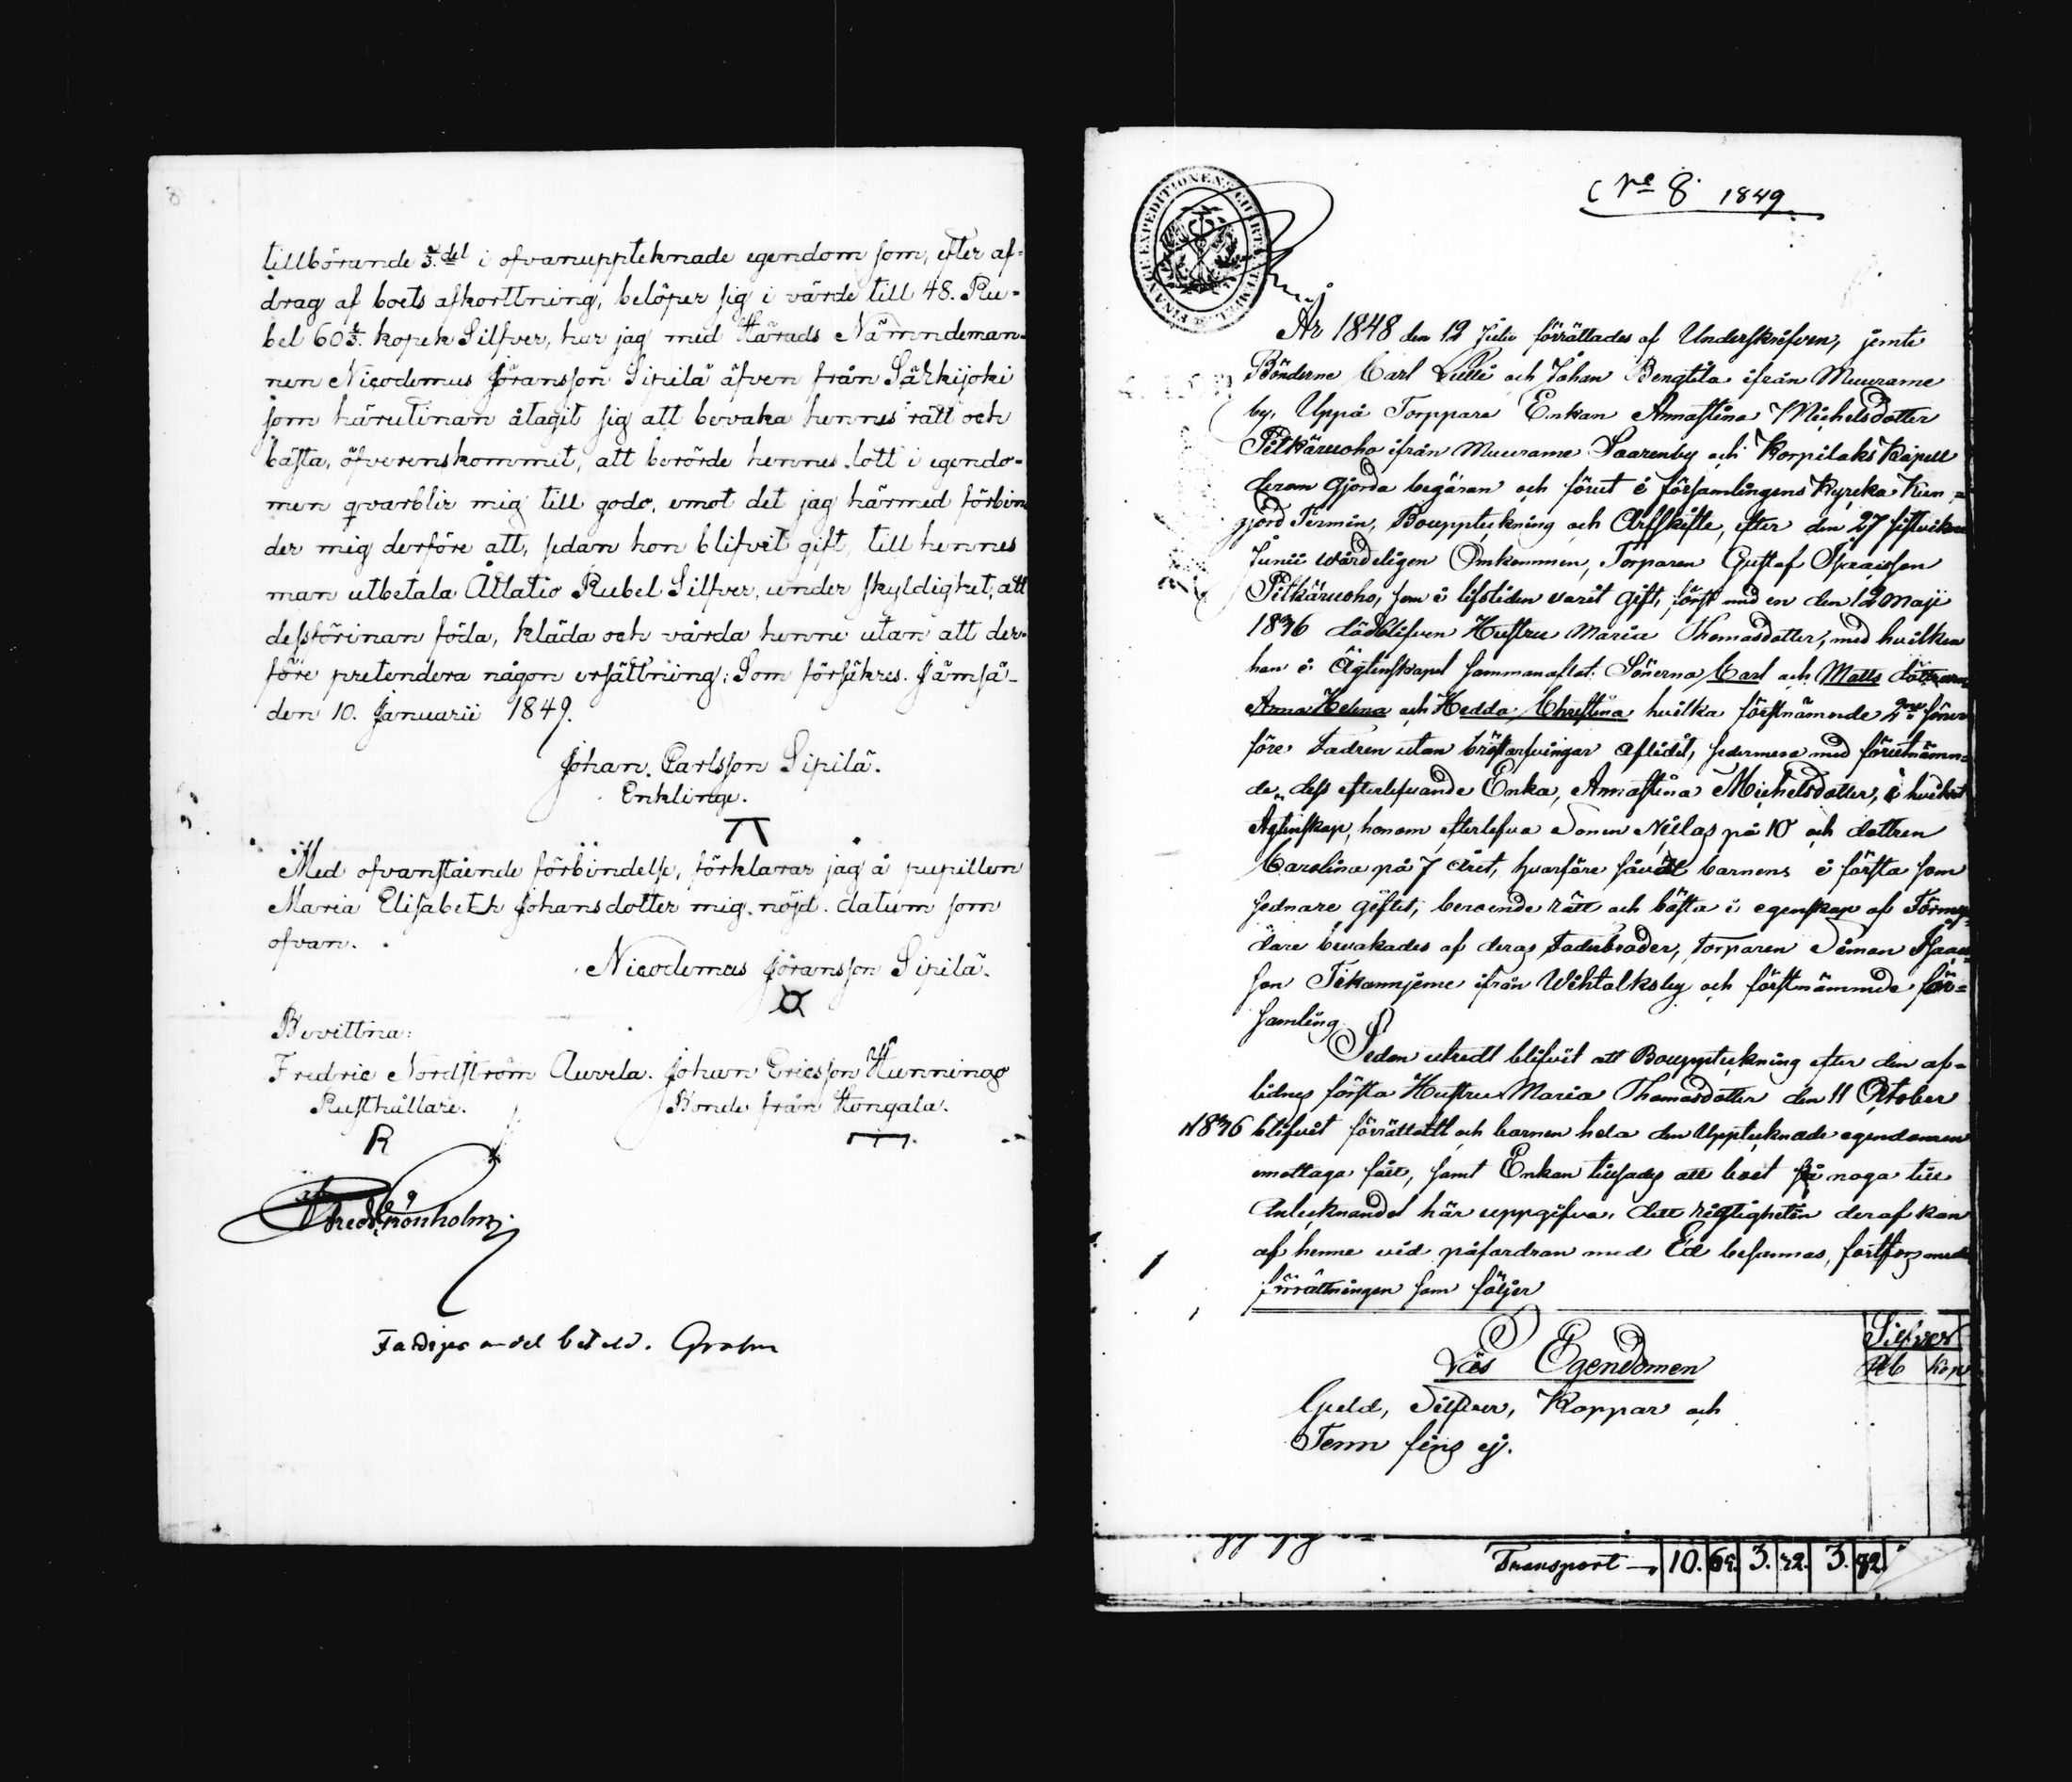 8
tillhörande 3.del i ofvanuppteknade egendom som, efter af-
drag af boets afkorttning, belöper sig i värde till 48. Ru-
bel 60 2/3. kopek Silfver, har jag med Härads Nämndeman-
nen Nicodemus Jöransson Sipilä äfven från Särkijoki
som härutinnan åtagit sig att bevaka hennes rätt och
bästa, öfverenskommit, att berörde hennes lott i egendo-
men qvarblir mig till godo, emot det jag härmed förbin
der mig derföre att, sedan hon blifvit gift, till hennes
man utbetala Åttatio Rubel Silfver, under skyldighet, att
dessförinan föda, kläda och vårda henne utan att der-
före pretendera någon ersättning; Som försäkres. Jämsä
den 10. Januarii 1849.
Johan Carlsson Sipilä.
Enklinge.
Med ofvanstående förbindelse, förklarar jag å pupillen
Maria Elisabeth Johansdotter mig nöjd. datum som
ofvan.
Nicodemus Jöransson Sipilä.
Bevittna:
Fredric Nordström Auvila. Johan Ericsson Hunninge
Rusthållare. Bonde från Kongala.
R
Fredr Grönholm
Fattiges andel betald. Grahn
No 8 1849
FINANCE EXPEDITIONENS CHARTÆ STEMPEL
År 1848 den 12 Julii förrättades af Underskrifven, jemte
Bönderne Carl Lulli och Johan Bengtila ifrån Muurame
by, Uppå Torppare Enkan Annastina Michelsdotter
Pitkäruoho ifrån Muurame Saarenby och Korpilaks Kapell
derom gjorda begäran och förut i församlingens Kyrcka Kun-
gjord Termin, Bouppteckning och Arfskifte, efter den 27 sistvikne
Junii wårdeligen Omkommen, Torparen Gustaf Isaacsson
Pitkäruoho, som i lifstiden varit gift, först med en den 12 Maji
1836 dödblifven Hustru Maria Thomasdotter, med hvilken
han i Ägtenskapet sammanaflat: Sönerna Carl och Matts döttrarne
Anna Helena och Hedda Christina hvilka förstnämnde 2ne söner
före Fadren utan bröstarfvingar aflidit, sedermera med förutnämn-
de, dess efterlefvande Enka, Annastina Michelsdotter, i hvilket
Ägtenskap, honom efterlefva Sonen Niklas på 10 och dottren
Carolina på 7 Året, hvarföre såväl barnens i första som
sednare giftet, beroende rätt och bästa i egenskap af Förmyn-
dare bevakades af deras Faderbroder, Torparen Simon Isaacs-
son Tikannjeme ifrån Wihtalksby och förstnämnde för-
samling.
Sedan utredt blifvit att Bouppteckning efter den af-
lidnes första Hustru Maria Thomasdotter den 11 October
1836 blifvit förrättadt och barnen hela den Upptecknade egendomen
emottaga fått, samt Enkan tillsades att boet så noga till
Antecknandet här uppgifva, att rigtigheten deraf kan
af henne vid påfordran med Ed besannas, fortfors med
förrättningen som följer
Lös Egendomen
Silfver
Rb Kop
Guld, Silfver, Koppar och
Tenn fins ej.
Transport 10. 65. 3. 42. 3. 92.